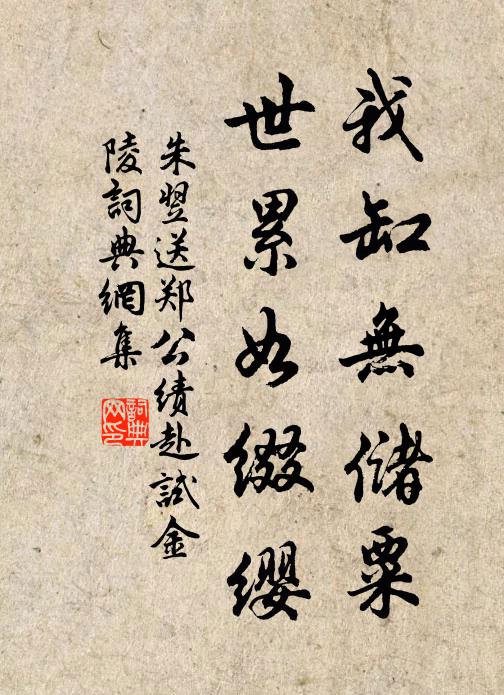 我缸無儲粟
世累如缀缨
朱翌送郑公績赴試金
陵詞典網集
詞典
网印